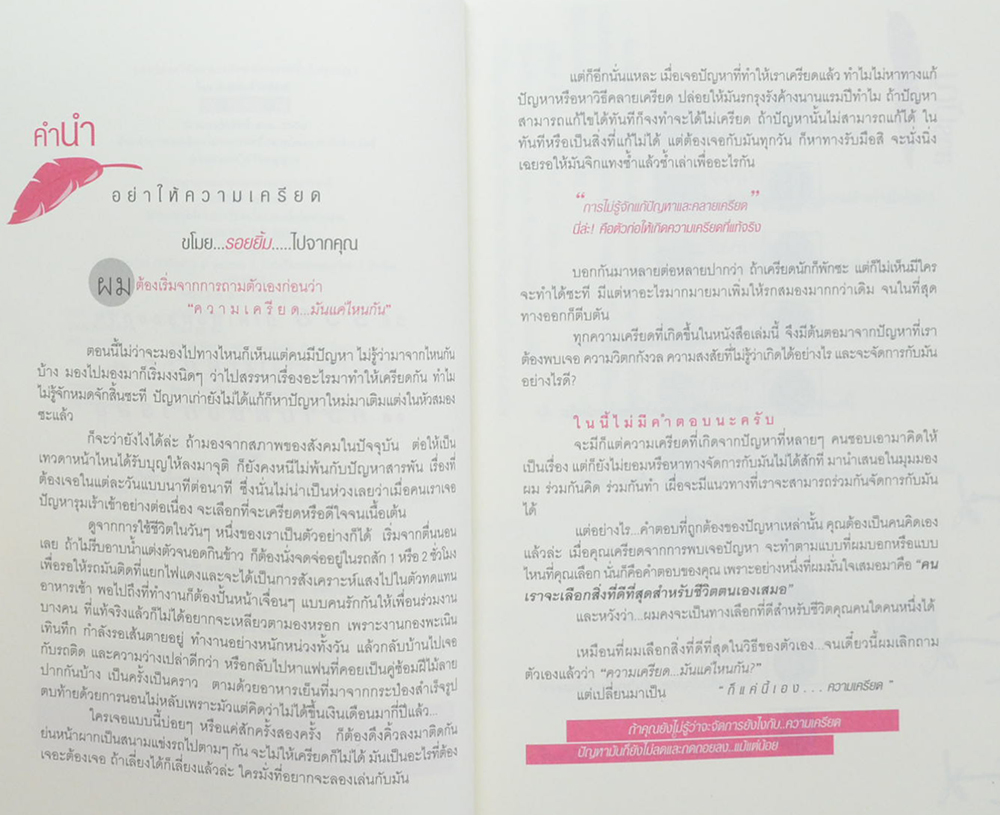 คำนำ
อย่าให้ความเครียด
ขโมย...รอยยิ้ม.....ไปจากคุณ
ผมต้องเริ่มจากการถามตัวเองก่อนว่า
"ความเครียด...มันแค่ไหนกัน"
ตอนนี้ไม่ว่าจะมองไปทางไหนก็เห็นแต่คนมีปัญหา ไม่รู้ว่ามาจากไหนกัน
บ้าง มองไปมองมาก็เริ่มงงนิดๆ ว่าไปสรรหาเรื่องอะไรมาทำให้เครียดกัน ทำไม
ไม่รู้จักหมดจักสิ้นซะที ปัญหาเก่ายังไม่ได้แก้ก็หาปัญหาใหม่มาเติมแต่งในหัวสมอง
ซะแล้ว
ก็จะว่ายังไงได้ล่ะ ถ้ามองจากสภาพของสังคมในปัจจุบัน ต่อให้เป็น
เทวดาหน้าไหนได้รับบุญให้ลงมาจุติ ก็ยังคงหนีไม่พ้นกับปัญหาสารพัน เรื่องที่
ต้องเจอในแต่ละวันแบบนาทีต่อนาที ซึ่งนั่นไม่น่าเป็นห่วงเลยว่าเมื่อคนเราเจอ
ปัญหารุมเร้าเข้าอย่างต่อเนื่อง จะเลือกที่จะเครียดหรือดีใจจนเนื้อเต้น
ดูจากการใช้ชีวิตในวันๆ หนึ่งของเราเป็นตัวอย่างก็ได้ เริ่มจากตื่นนอน
เลย ถ้าไม่รีบอาบน้ำแต่งตัวจนอดกินข้าว ก็ต้องนั่งจดจ่ออยู่ในรถสัก 1 หรือ 2 ชั่วโมง
เพื่อรอให้รถมันติดที่แยกไฟแดงและจะได้เป็นการสังเคราะห์แสงไปในตัวทดแทน
อาหารเช้า พอไปถึงที่ทำงานก็ต้องปั้นหน้าเจื่อนๆ แบบคนรักกันให้เพื่อนร่วมงาน
บางคน ที่แท้จริงแล้วก็ไม่ได้อยากจะเหลียวตามองหรอก เพราะงานกองพะเนิน
เทินทึก กำลังรอเส้นตายอยู่ ทำงานอย่างหนักหน่วงทั้งวัน แล้วกลับบ้านไปเจอ
กับรถติด และความว่างเปล่าดีกว่า หรือกลับไปหาแฟนที่คอยเป็นคู่ซ้อมฝีไม้ลาย
ปากกันบ้าง เป็นครั้งเป็นคราว ตามด้วยอาหารเย็นที่มาจากกระป๋องสำเร็จรูป
ตบท้ายด้วยการนอนไม่หลับเพราะมัวแต่คิดว่าไม่ได้ขึ้นเงินเดือนมากี่ปีแล้ว...
ใครเจอแบบนี้บ่อยๆ หรือแค่สักครั้งสองครั้ง ก็ต้องดึงคิ้วลงมาติดกัน
ย่นหน้าผากเป็นสนามแข่งรถไปตามๆ กัน จะไม่ให้เครียดก็ไม่ได้ มันเป็นอะไรที่ต้อง
เจอะต้องเจอ ถ้าเลี่ยงได้ก็เลี่ยงแล้วล่ะ ใครมังที่อยากจะลองเล่นกับมัน
แต่ก็อีกนั่นแหละ เมื่อเจอปัญหาที่ทำให้เราเครียดแล้ว ทำไมไม่หาทางแก้
ปัญหาหรือหาวิธีคลายเครียด ปล่อยให้มันรกรุงรังค้างนานแรมปีทำไม ถ้าปัญหา
สามารถแก้ไขได้ทันทีก็จงทำจะได้ไม่เครียด ถ้าปัญหานั้นไม่สามารถแก้ได้ ใน
ทันทีหรือเป็นสิ่งที่แก้ไม่ได้ แต่ต้องเจอกับมันทุกวัน ก็หาทางรับมือสิ จะนั่งนิ่ง
เฉยรอให้มันจิกแทงซ้ำแล้วซ้ำเล่าเพื่ออะไรกัน
"การไม่รู้จักแก้ปัญหาและคลายเครียด"
นี่ล่ะ! คือตัวก่อให้เกิดความเครียดที่แท้จริง
บอกกันมาหลายต่อหลายปากว่า ถ้าเครียดนักก็พักซะ แต่ก็ไม่เห็นมีใคร
จะทำได้ซะที มีแต่หาอะไรมากมายมาเพิ่มให้รกสมองมากกว่าเดิม จนในที่สุด
ทางออกก็ตีบตัน
ทุกความเครียดที่เกิดขึ้นในหนังสือเล่มนี้ จึงมีต้นตอมาจากปัญหาที่เรา
ต้องพบเจอ ความวิตกกังวล ความสงสัยที่ไม่รู้ว่าเกิดได้อย่างไร และจะจัดการกับมัน
อย่างไรดี?
ในนี้ไม่มีคำตอบนะครับ
จะมีก็แต่ความเครียดที่เกิดจากปัญหาที่หลายๆ คนชอบเอามาคิดให้
เป็นเรื่อง แต่ก็ยังไม่ยอมหรือหาทางจัดการกับมันไม่ได้สักที มานำเสนอในมุมมอง
ผม ร่วมกันคิด ร่วมกันทำ เผื่อจะมีแนวทางที่เราจะสามารถร่วมกันจัดการกับมัน
ได้
แต่อย่างไร...คำตอบที่ถูกต้องของปัญหาเหล่านั้น คุณต้องเป็นคนคิดเอง
แล้วล่ะ เมื่อคุณเครียดจากการพบเจอปัญหา จะทำตามแบบที่ผมบอกหรือแบบ
ไหนที่คุณเลือก นั่นก็คือคำตอบของคุณ เพราะอย่างหนึ่งที่ผมมั่นใจเสมอมาคือ "คน
เราจะเลือกสิ่งที่ดีที่สุดสำหรับชีวิตตนเองเสมอ"
และหวังว่า...ผมคงจะเป็นทางเลือกที่ดีสำหรับชีวิตคุณคนใดคนหนึ่งได้
เหมือนที่ผมเลือกสิ่งที่ดีที่สุดในวิธีของตัวเอง...จนเดี๋ยวนี้ผมเลิกถาม
ตัวเองแล้วว่า "ความเครียด...มันแค่ไหนกัน?"
แต่เปลี่ยนมาเป็น "ก็แค่นี้เอง...ความเครียด"
ถ้าคุณยังไม่รู้ว่าจะจัดการยังไงกับ..ความเครียด
ปัญหามันก็ยังไม่ลดและถดถอยลง..แม้แต่น้อย